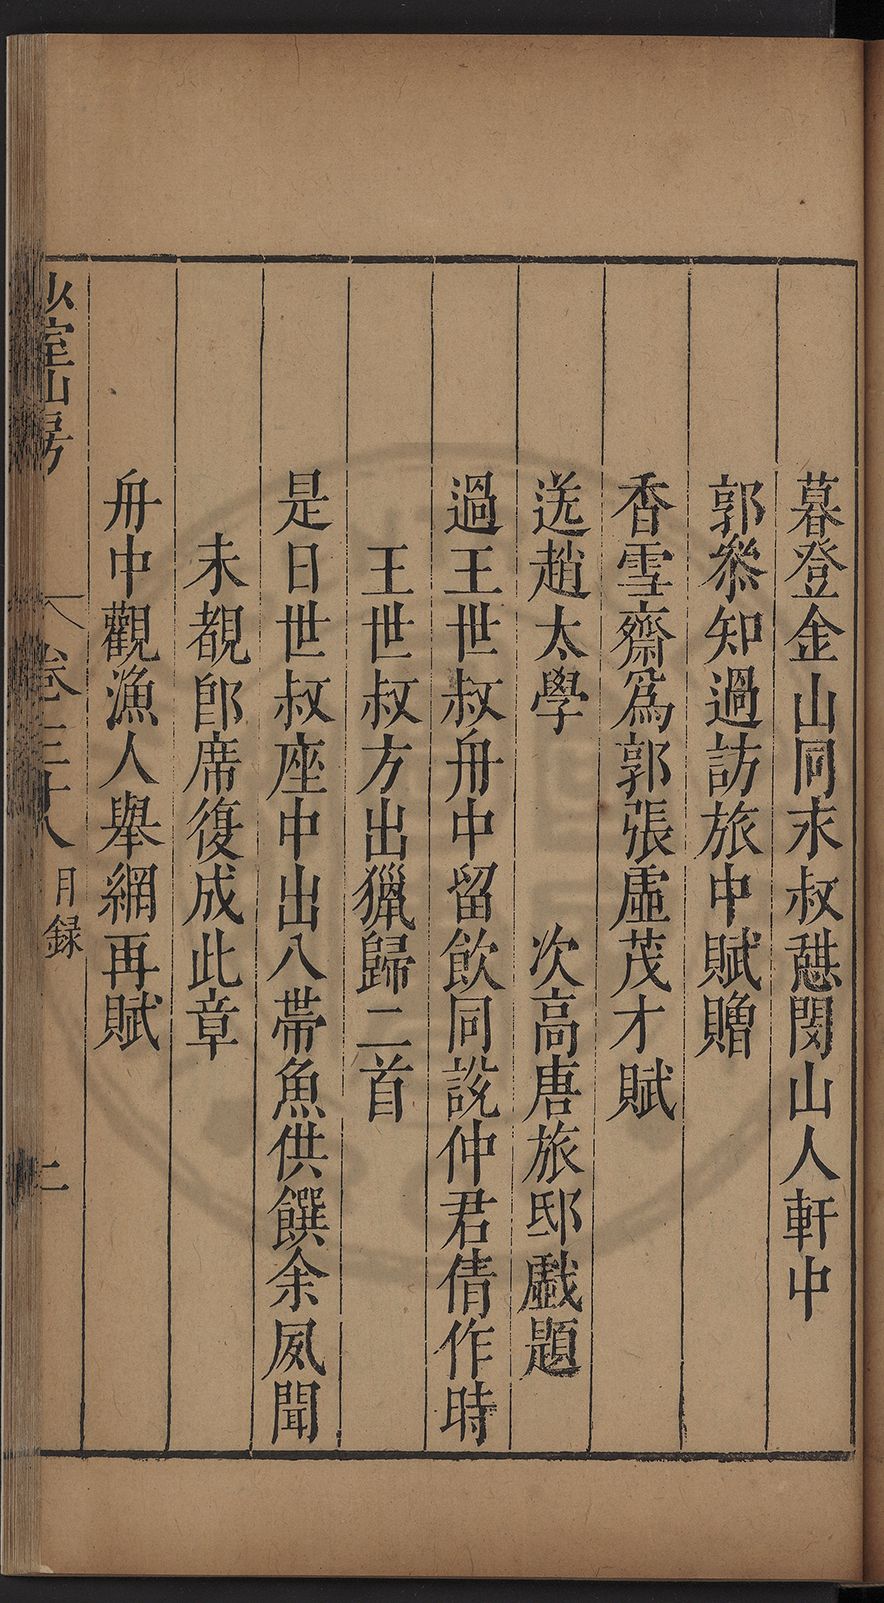 暮登金山同末叔憇閔山人軒中
郭叅知過訪旅中賦贈
香雪齋爲郭張虛茂才賦
送趙太學　次高唐旅邸戲題
過王世叔舟中留飲同說仲君倩作時
王世叔方出獵歸二首
是日世叔座中出八帶魚供饌余夙聞
未覩卽席復成此章
舟中觀漁人舉網再賦
少室山房　卷三十八　目録　二